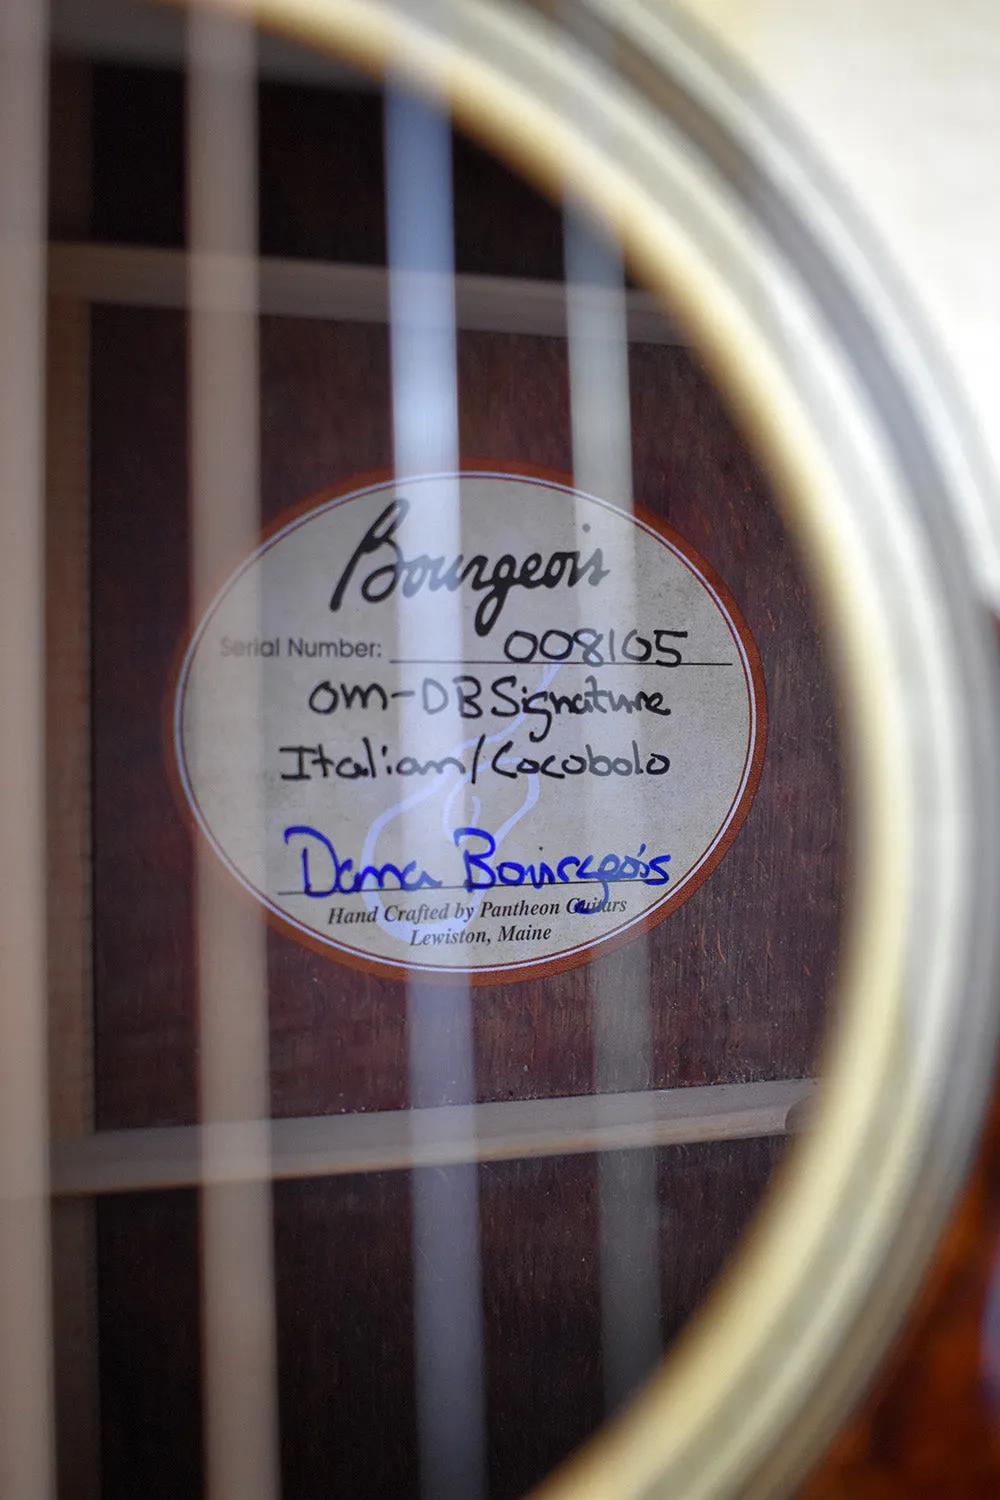 Bourgeois
Serial Number: 008105
OM-DB Signature
Italian/Cocobolo
Dana Bourgeois
Hand Crafted by Pantheon Guitars
Lewiston, Maine